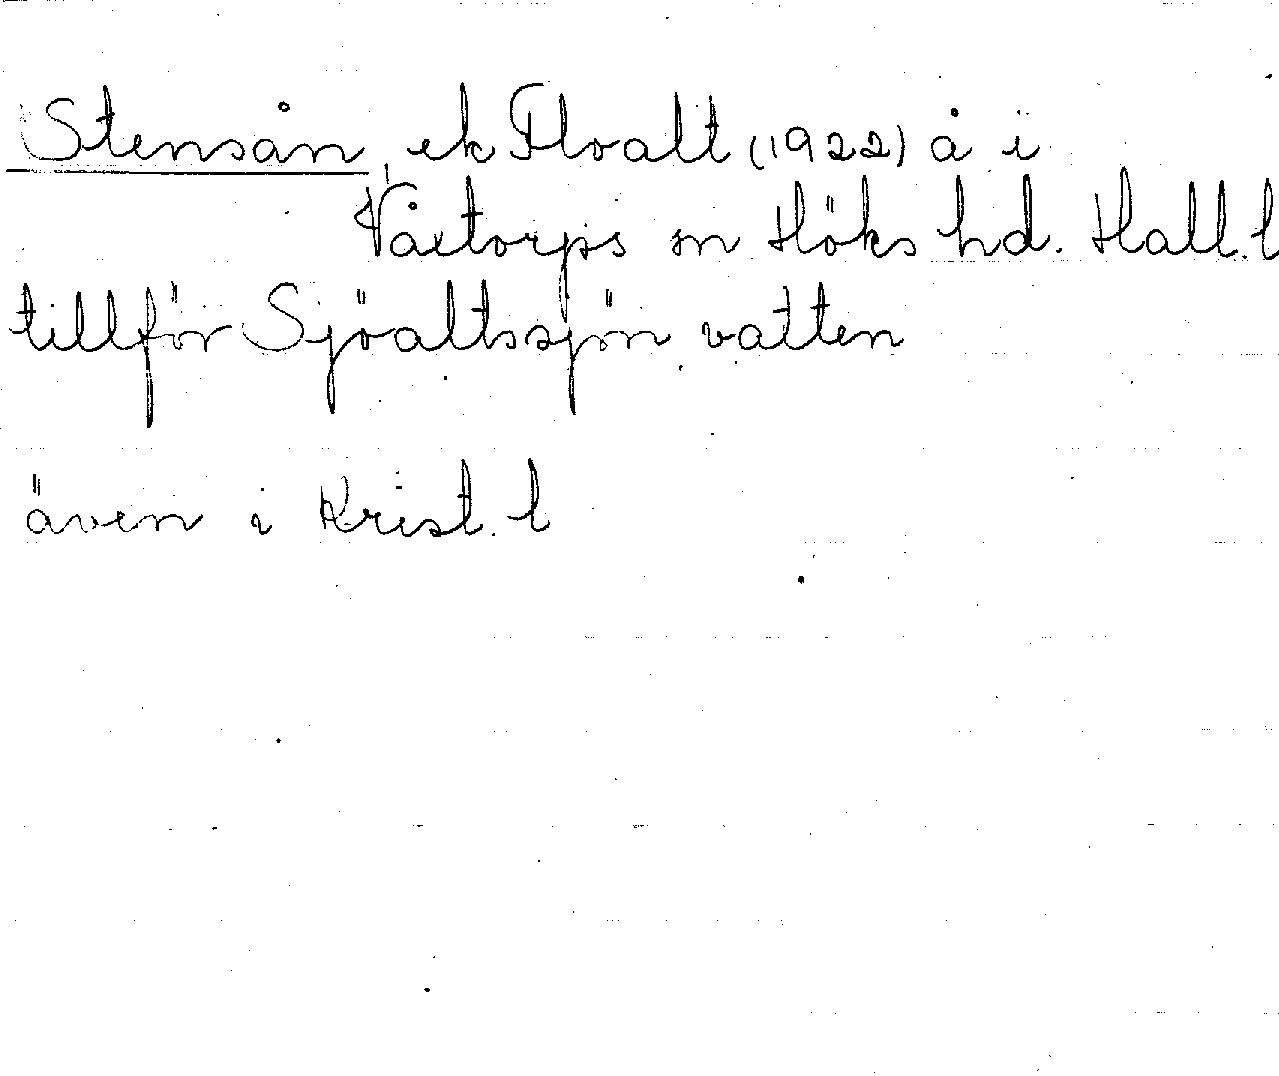 Stensån, ek Flvalt (1922) å i
Våxtorps sn Höks hd. Hall.l
tillför Sjöaltssjön vatten
även i Krist.l